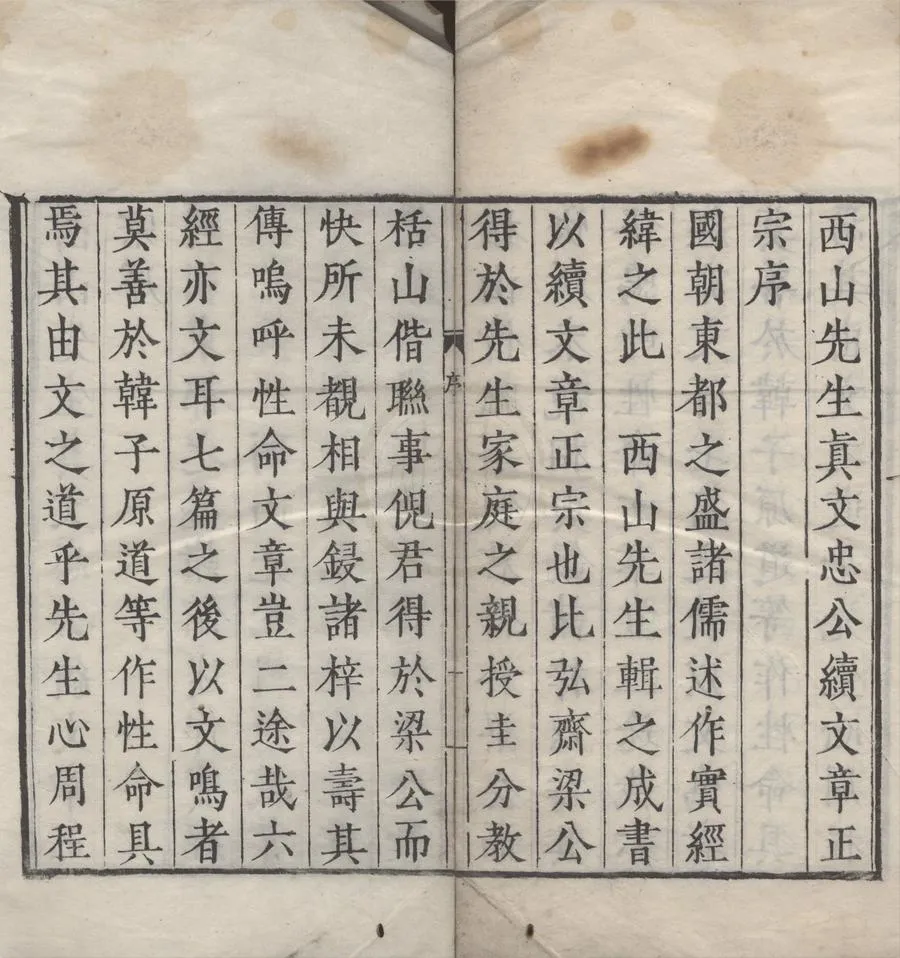 西山先生眞文忠公續文章正
宗序
國朝東都之盛諸儒述作實經
緯之此 西山先生輯之成書
以續文章正宗也比弘齋梁公
得於先生家庭之親授圭分教
序
一
栝山偕聮事倪君得於梁公而
快所未覩相與鋟諸梓以壽其
傳嗚呼性命文章豈二途哉六
經亦文耳七篇之後以文鳴者
莫善於韓子原道等作性命具
焉其由文之道乎先生心周程